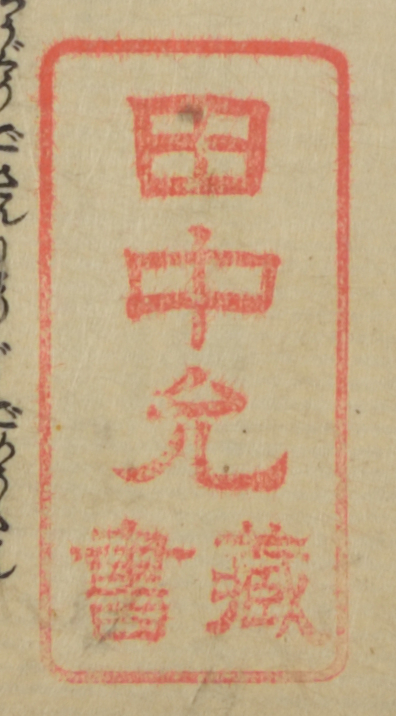 田中允
藏書